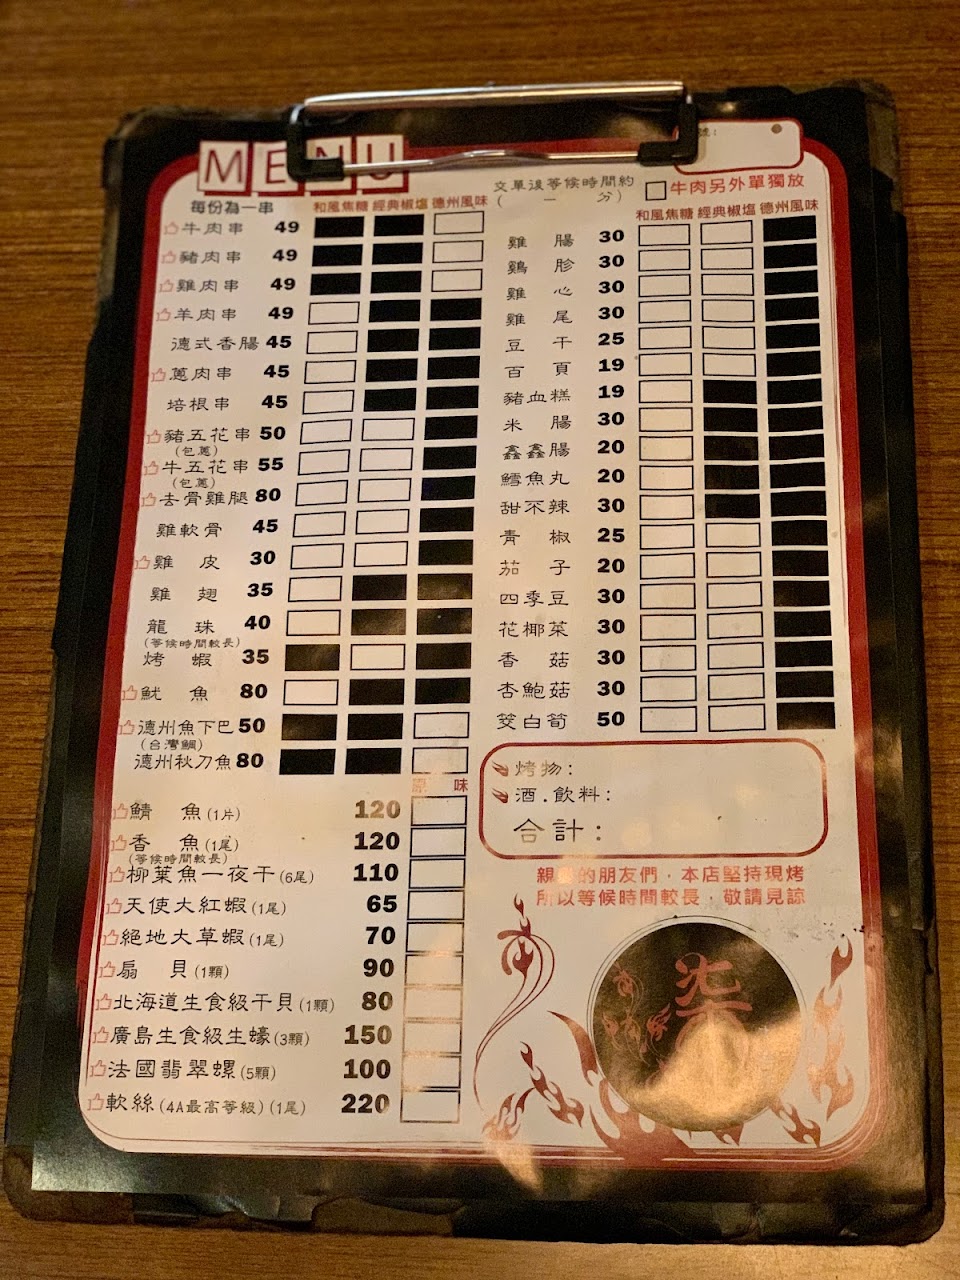 MENU
每份為一串
和風焦糖 經典椒塩 德州風味
牛肉串 49
豬肉串 49
雞肉串 49
羊肉串 49
德式香腸 45
蔥肉串 45
培根串 45
豬五花串 50
(包蔥)
牛五花串 55
(包蔥)
去骨雞腿 80
雞軟骨 45
雞皮 30
雞翅 35
龍珠 40
(等候時間較長)
烤蝦 35
魷魚 80
德州魚下巴 50
(台灣鯛)
德州秋刀魚 80
原味
鯖魚(1片) 120
香魚(1尾) 120
(等候時間較長)
柳葉魚一夜干(6尾) 110
天使大紅蝦(1尾) 65
絕地大草蝦(1尾) 70
扇貝(1顆) 90
北海道生食級干貝(1顆) 80
廣島生食級生蠔(3顆) 150
法國翡翠螺(5顆) 100
軟絲(4A最高等級)(1尾) 220
號:
交單後等候時間約
( 一 分)
牛肉另外單獨放
和風焦糖 經典椒塩 德州風味
雞腸 30
鷄胗 30
雞心 30
雞尾 30
豆干 25
百頁 19
豬血糕 19
米腸 30
鑫鑫腸 20
鱈魚丸 20
甜不辣 30
青椒 25
茄子 20
四季豆 30
花椰菜 30
香菇 30
杏鮑菇 30
筊白筍 50
烤物:
酒.飲料:
合計:
親的朋友們.本店堅持現烤
所以等候時間較長.敬請見諒
柒